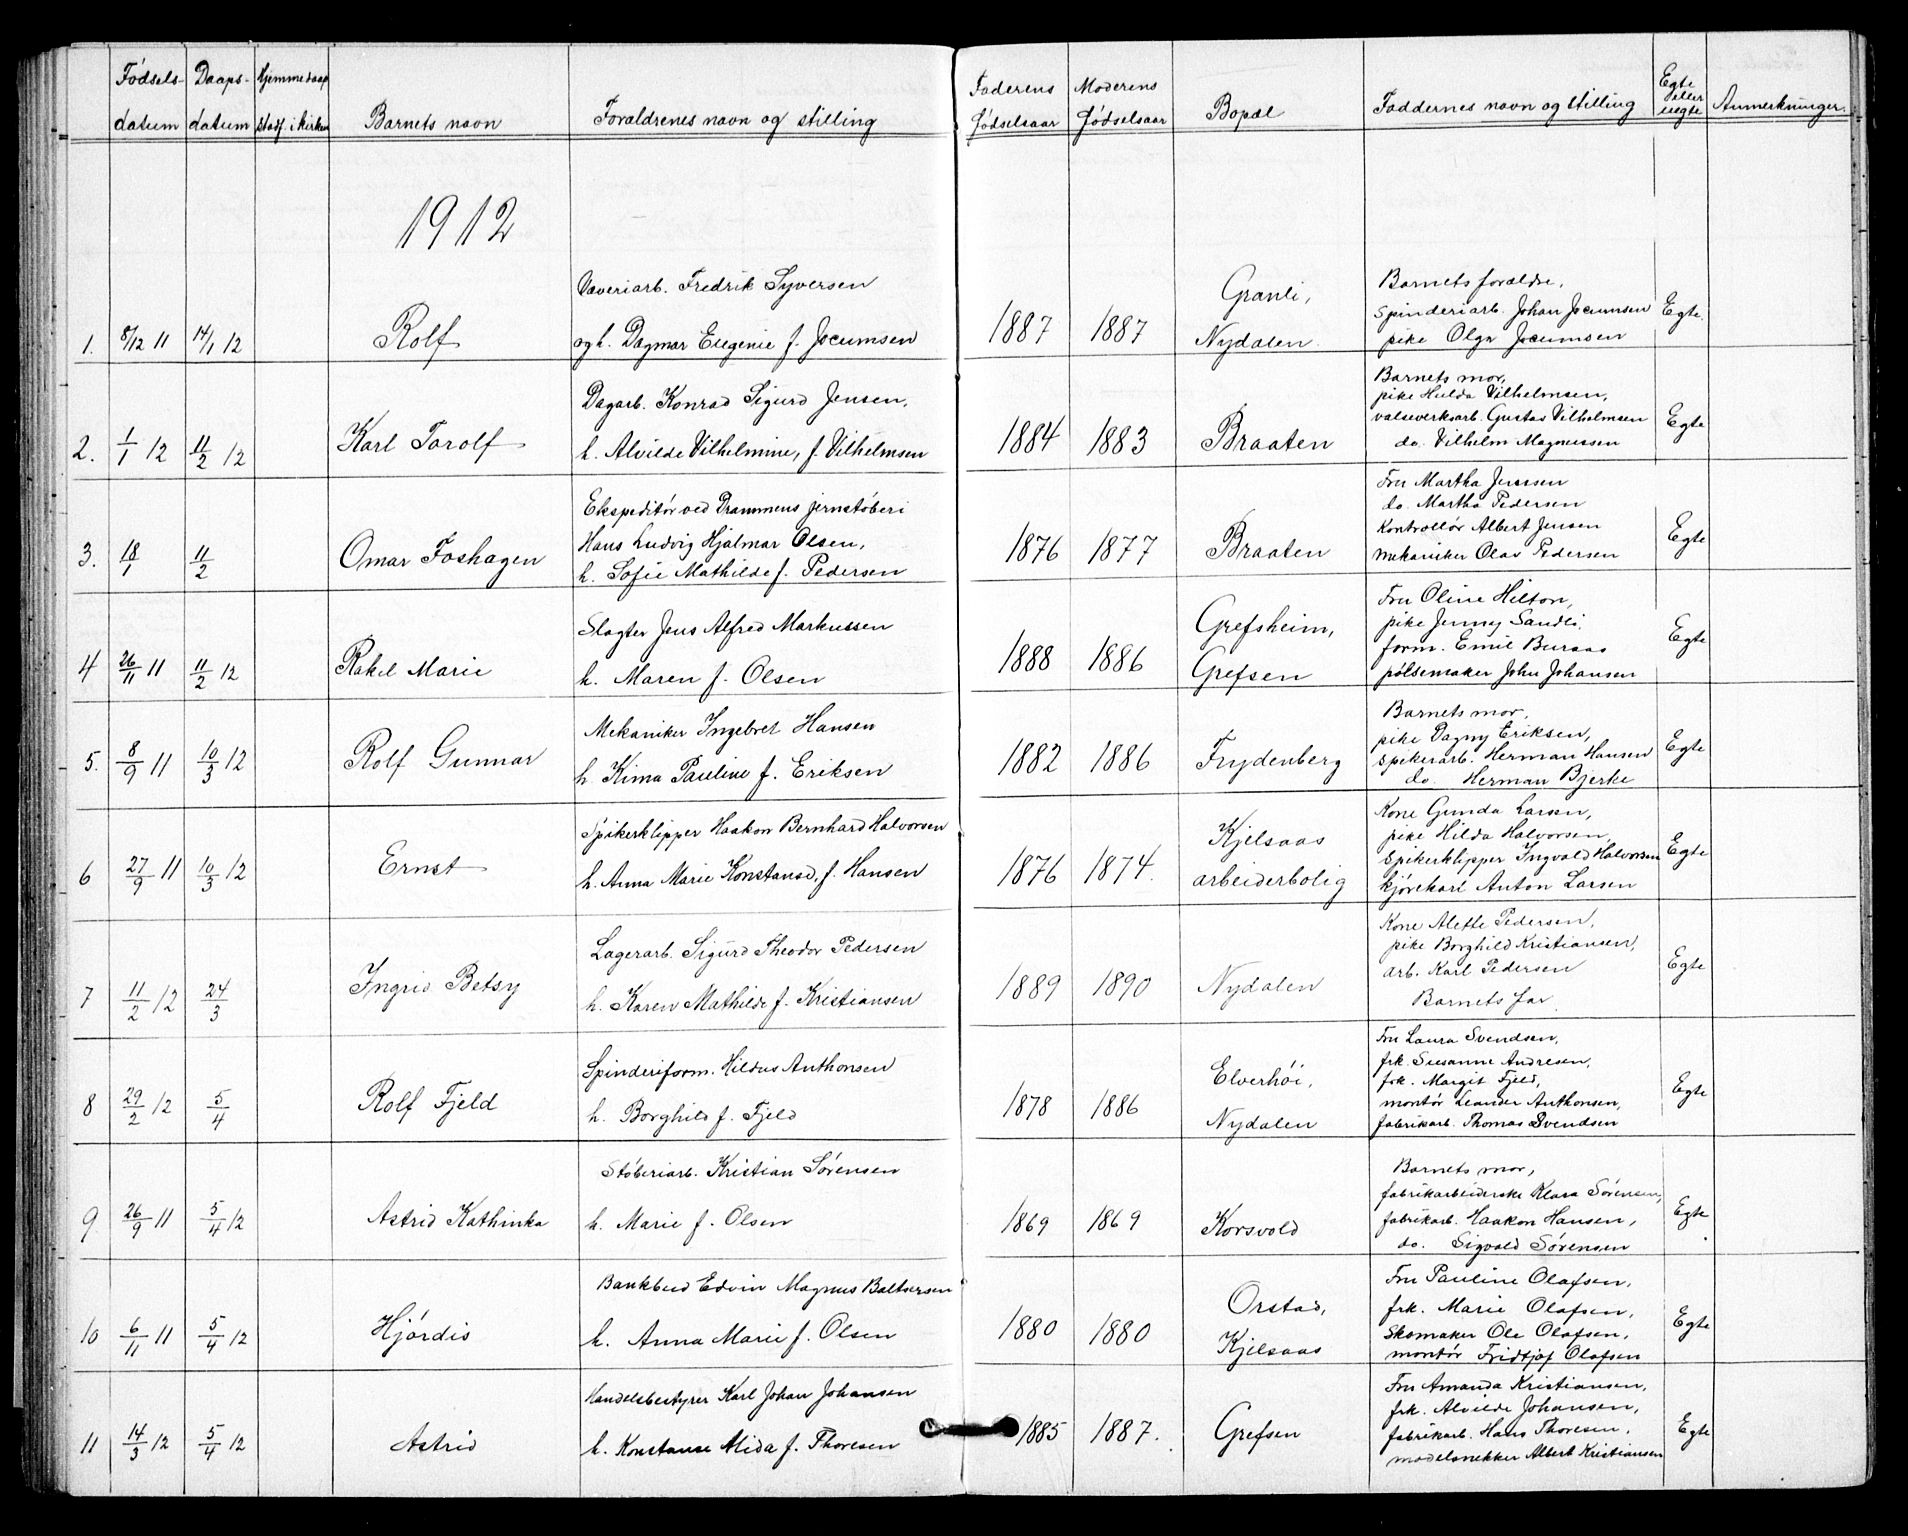 Fødsels-datum | Daaps-datum | Hjemmedaap stadf. i kirken | Barnets navn | Forældrenes navn og stilling | Faderens Fødselsaar | Moderens Fødselsaar | Bopæl | Faddernes navn og stilling | Egte eller uegte | Anmerkninger
1912
Væveriarb. Fredrik Syversen
1. 8/12 11 14/1 12 Rolf
og h. Dagmar Eugenie f. Jocumsen
1887 1887
Granli,
Nydalen
Barnets forældre,
Spinderiarb. Johan Jocumsen
pike Olga Jocumsen
Egte.
Dagarb. Konrad Sigurd Jensen,
2. 1/1 12 11/2 12 Karl Torolf
h. Alvilde Vilhelmine, f. Vilhelmsen
1884 1883 Braaten
Barnets mor,
pike Hulda Vilhelmsen,
valseverksarb. Gustav Vilhelmsen
do. Vilhelm Magnussen
Egte
Ekspeditør ved Drammens jernstøberi
3. 18/1 11/2 Omar Foshagen
Hans Ludvig Hjalmar Olsen,
h. Sofie Mathilde f. Pedersen
1876 1877 Braaten
Fru Martha Jenssen
do Martha Pedersen
Kontrollør Albert Jensen
mekaniker Olav Pedersen
Egte
Slagter Jens Alfred Markussen
4 26/11 11 11/2 12 Rakel Marie
h. Maren f. Olsen
1888 1886
Grefsheim,
Grefsen
Fru Oline Hilton,
pike Jenny Sandli.
form. Emil Buraas
pølsemaker John Johansen
Egte
Mekaniker Ingebret Hansen
5. 8/9 11 10/3 12 Rolf Gunnar
h. Kima Pauline f. Eriksen
1882 1886 Frydenberg
Barnets mor,
pike Dagny Eriksen,
spikerarb. Herman Hansen
do. Herman Bjerke
Egte
Spikerklipper Haakon Bernhard Halvorsen
6 27/9 11 10/3 12 Ernst
h. Anna Marie Konstanse, f. Hansen
1876 1874.
Kjelsaas
arbeiderbolig
Kone Gunda Larsen,
pike Hilda Halvorsen,
Spikerklipper Ingvald Halvorsen
kjørekarl Anton Larsen
Egte
Lagerarb. Sigurd Theodor Pedersen
7 11/2 12 24/3 Ingrid Betsy
h. Karen Mathilde f. Kristiansen
1889 1890 Nydalen
Kone Alette Pedersen,
pike Borghild Kristiansen,
arb. Karl Pedersen
Barnets far
Egte
Spinderiform. Hildus Anthonsen
8 29/2 12 5/4 Rolf Fjeld
h. Borghild f. Fjeld
1878 1886
Elverhøi,
Nydalen
Fru Laura Svendsen,
frk. Susanne Andresen,
frk. Margit Fjeld,
montør Leander Anthonsen,
fabrikarb. Thomas Svendsen
Egte
Støberiarb. Kristian Sørensen
9 26/9 11 5/4 12 Astrid Kathinka
h. Marie f. Olsen
1869 1869 Korsvold
Barnets mor,
fabrikarbeiderske Klara Sørensen,
fabrikarb. Haakon Hansen,
do. Sigvald Sørensen
Egte
Bankbud Edvin Magnus Baltsersen
10 6/11 11 5/4 12 Hjørdis
h. Anna Marie f. Olsen
1880 1880
Orstad,
Kjelsaas
Fru Pauline Olafsen,
frk. Marie Olafsen,
Skomaker Ole Olafsen,
montør Fridtjof Olafsen
Egte
Handelsbestyrer Karl Johan Johansen
11 14/3 12 5/4 12 Astrid
h. Konstanse Alida f. Thoresen
1885 1887. Grefsen
Fru Amanda Kristiansen,
frk. Alvilde Johansen,
fabrikarb. Hans Thoresen,
modelsnekker Albert Kristiansen
Egte